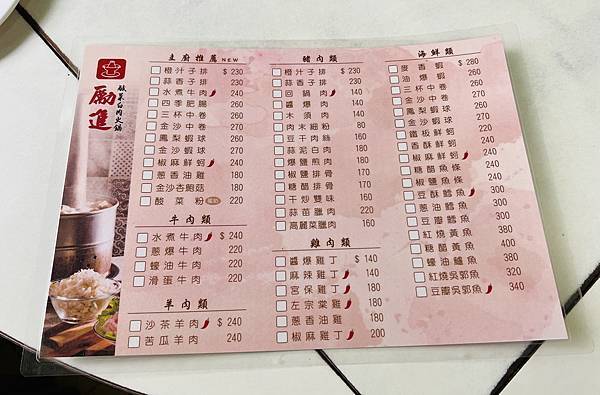 勵進
酸菜白肉火鍋
主廚推薦 NEW
橙汁子排 $ 230
蒜香子排 230
水煮牛肉 240
四季肥腸 260
三杯中卷 260
金沙中卷 260
鳳梨蝦球 260
金沙蝦球 260
椒麻鮮蚵 240
蔥香油雞 180
金沙杏鮑菇 180
酸菜粉 160
牛肉類
水煮牛肉 $ 240
蔥爆牛肉 220
蠔油牛肉 220
滑蛋牛肉 220
羊肉類
沙茶羊肉 $ 240
苦瓜羊肉 240
豬肉類
橙汁子排 $ 230
蒜香子排 230
回鍋肉 140
醬爆肉 140
木須肉 140
肉末細粉 80
豆干肉絲 160
蒜泥白肉 180
爆鹽煎肉 180
椒鹽排骨 180
糖醋排骨 180
干炒雙味 160
蒜苗臘肉 220
高麗菜臘肉 160
雞肉類
醬爆雞丁 $ 140
麻辣雞丁 140
宮保雞丁 160
左宗棠雞 180
蔥香油雞 180
椒麻雞丁 200
海鮮類
麥香蝦 $ 280
油爆蝦 260
三杯中卷 260
金沙中卷 260
鳳梨蝦球 260
金沙蝦球 260
鐵板鮮蚵 220
香酥鮮蚵 220
椒麻鮮蚵 240
糖醋魚條 240
椒鹽魚條 240
豆酥鱈魚 300
蔥油鱈魚 300
豆瓣鱈魚 300
紅燒黃魚 380
糖醋黃魚 400
蠔油鱸魚 380
紅燒吳郭魚 320
豆瓣吳郭魚 340